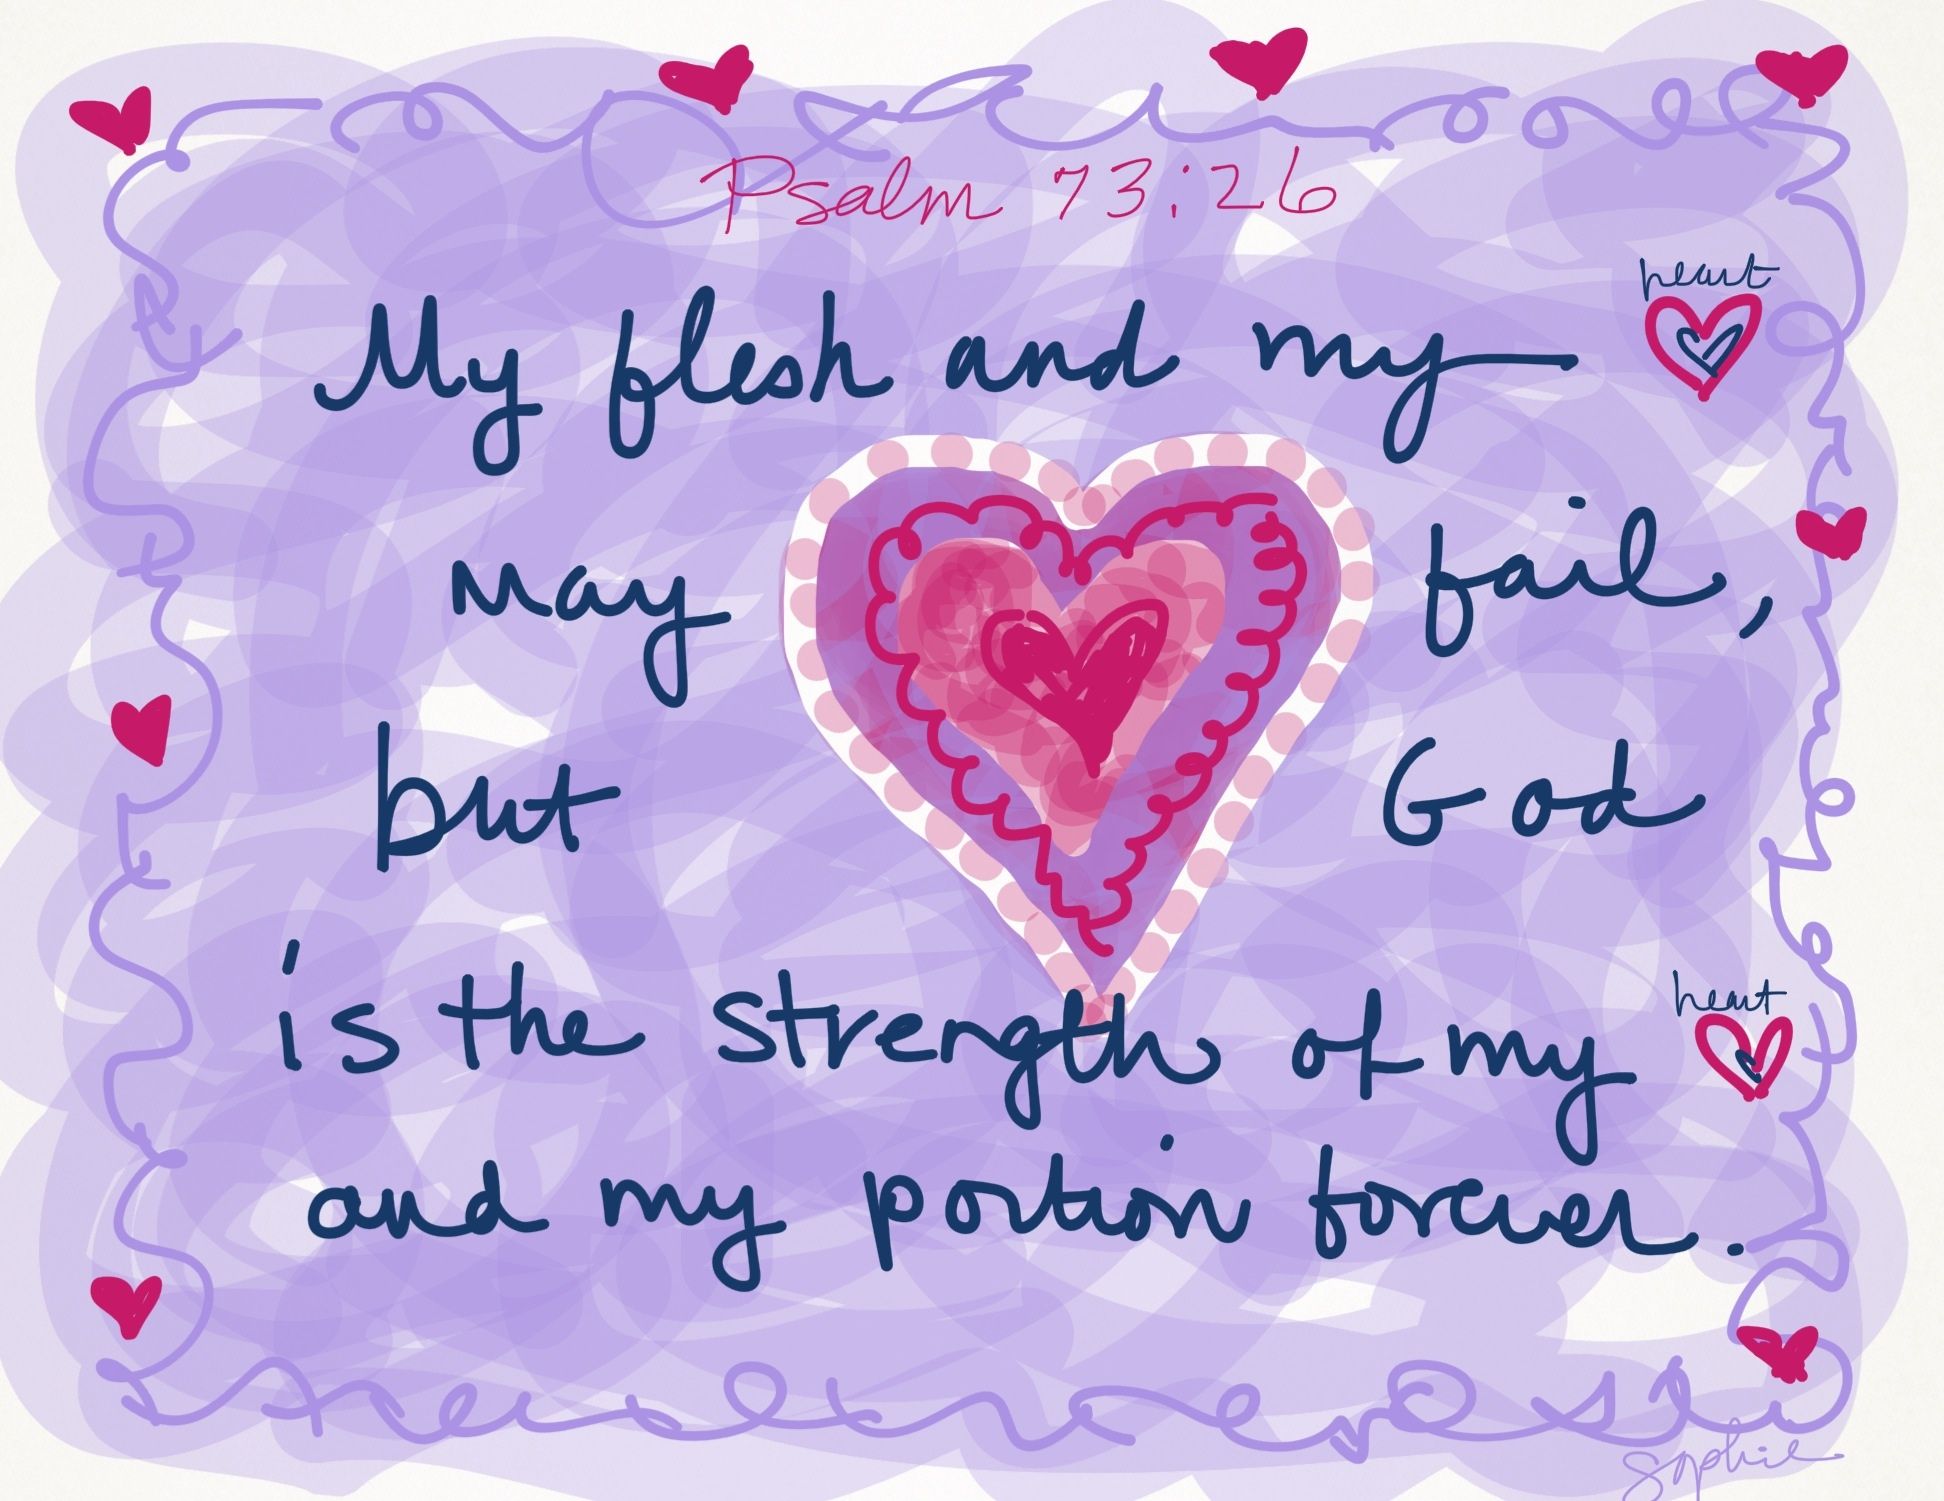 Psalm 73:26
heart
My flesh and my
may fail,
but God
heart
is the strength of my
and my portion forever.
Sophie